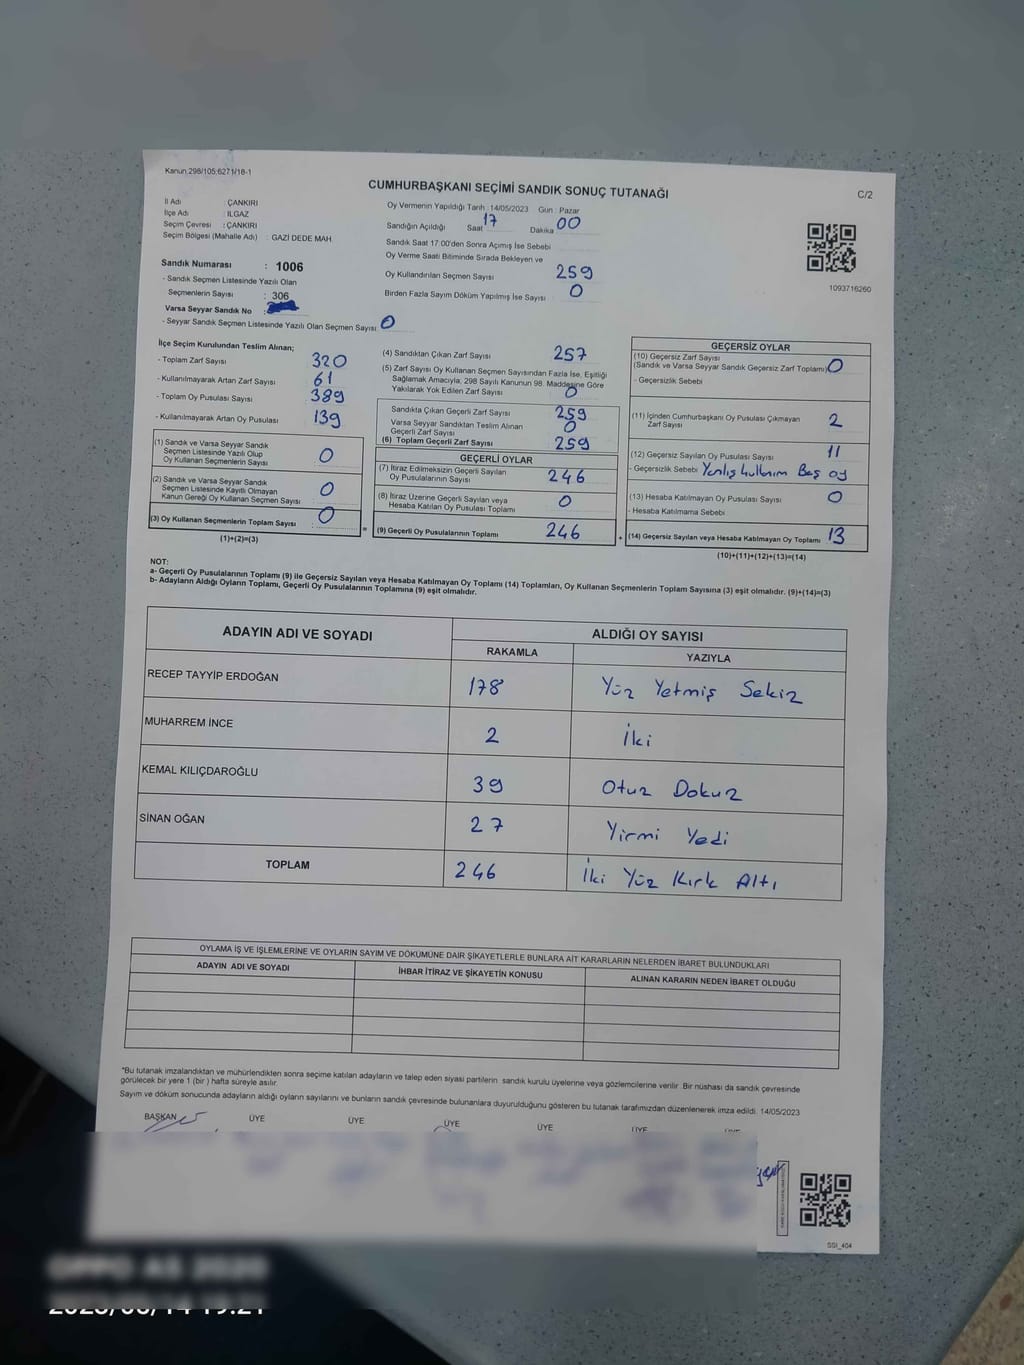 Kanun 298/105:6271/18-1
CUMHURBAŞKANI SEÇİMİ SANDIK SONUÇ TUTANAĞI
C/2
İl Adı : ÇANKIRI
İlçe Adı : ILGAZ
Seçim Çevresi : ÇANKIRI
Seçim Bölgesi (Mahalle Adı) : GAZİ DEDE MAH.
Sandık Numarası : 1006
- Sandık Seçmen Listesinde Yazılı Olan
Seçmenlerin Sayısı : 306
Varsa Seyyar Sandık No :
- Seyyar Sandık Seçmen Listesinde Yazılı Olan Seçmen Sayısı: 0
Oy Vermenin Yapıldığı Tarih : 14/05/2023 Gün : Pazar
Sandığın Açıldığı Saat 17 Dakika 00
Sandık Saat 17.00'den Sonra Açımış İse Sebebi
Oy Verme Saati Bitiminde Sırada Bekleyen ve
Oy Kullandırılan Seçmen Sayısı 259
Birden Fazla Sayım Döküm Yapılmış İse Sayısı 0
1093716260
İlçe Seçim Kurulundan Teslim Alınan;
- Toplam Zarf Sayısı 320
- Kullanılmayarak Artan Zarf Sayısı 61
- Toplam Oy Pusulası Sayısı 389
- Kullanılmayarak Artan Oy Pusulası 139
(1) Sandık ve Varsa Seyyar Sandık
Seçmen Listesinde Yazılı Olup
Oy Kullanan Seçmenlerin Sayısı 0
(2) Sandık ve Varsa Seyyar Sandık
Seçmen Listesinde Kayıtlı Olmayan
Kanun Gereği Oy Kullanan Seçmen Sayısı 0
(3) Oy Kullanan Seçmenlerin Toplam Sayısı 0
(1)+(2)=(3)
(4) Sandıktan Çıkan Zarf Sayısı 257
(5) Zarf Sayısı Oy Kullanan Seçmen Sayısından Fazla İse, Eşitliği
Sağlamak Amacıyla, 298 Sayılı Kanunun 98. Maddesine Göre
Yakılarak Yok Edilen Zarf Sayısı 0
Sandıkta Çıkan Geçerli Zarf Sayısı 259
Varsa Seyyar Sandıktan Teslim Alınan
Geçerli Zarf Sayısı 0
(6) Toplam Geçerli Zarf Sayısı 259
GEÇERLİ OYLAR
(7) İtiraz Edilmeksizin Geçerli Sayılan
Oy Pusulalarının Sayısı 246
(8) İtiraz Üzerine Geçerli Sayılan veya
Hesaba Katılan Oy Pusulası Toplamı 0
= (9) Geçerli Oy Pusulalarının Toplamı 246
GEÇERSİZ OYLAR
(10) Geçersiz Zarf Sayısı
(Sandık ve Varsa Seyyar Sandık Geçersiz Zarf Toplamı) 0
- Geçersizlik Sebebi
(11) İçinden Cumhurbaşkanı Oy Pusulası Çıkmayan
Zarf Sayısı 2
(12) Geçersiz Sayılan Oy Pusulası Sayısı 11
- Geçersizlik Sebebi Yanlış kullanım Boş oy
(13) Hesaba Katılmayan Oy Pusulası Sayısı 0
- Hesaba Katılmama Sebebi
+ (14) Geçersiz Sayılan veya Hesaba Katılmayan Oy Toplamı 13
(10)+(11)+(12)+(13)=(14)
NOT:
a- Geçerli Oy Pusulalarının Toplamı (9) ile Geçersiz Sayılan veya Hesaba Katılmayan Oy Toplamı (14) Toplamları, Oy Kullanan Seçmenlerin Toplam Sayısına (3) eşit olmalıdır. (9)+(14)=(3)
b- Adayların Aldığı Oyların Toplamı, Geçerli Oy Pusulalarının Toplamına (9) eşit olmalıdır.
ADAYIN ADI VE SOYADI ALDIĞI OY SAYISI
RAKAMLA YAZIYLA
RECEP TAYYİP ERDOĞAN 178 Yüz Yetmiş Sekiz
MUHARREM İNCE 2 İki
KEMAL KILIÇDAROĞLU 39 Otuz Dokuz
SİNAN OĞAN 27 Yirmi Yedi
TOPLAM 246 İki Yüz Kırk Altı
OYLAMA İŞ VE İŞLEMLERİNE VE OYLARIN SAYIM VE DÖKÜMÜNE DAİR ŞİKAYETLERLE BUNLARA AİT KARARLARIN NELERDEN İBARET BULUNDUKLARI
ADAYIN ADI VE SOYADI İHBAR İTİRAZ VE ŞİKAYETİN KONUSU ALINAN KARARIN NEDEN İBARET OLDUĞU
"Bu tutanak imzalandıktan ve mühürlendikten sonra seçime katılan adayların ve talep eden siyasi partilerin sandık kurulu üyelerine veya gözlemcilerine verilir. Bir nüshası da sandık çevresinde
görülecek bir yere 1 (bir) hafta süreyle asılır.
Sayım ve döküm sonucunda adayların aldığı oyların sayılarını ve bunların sandık çevresinde bulunanlara duyurulduğunu gösteren bu tutanak tarafımızdan düzenlenerek imza edildi. 14/05/2023
BAŞKAN ÜYE ÜYE ÜYE ÜYE ÜYE ÜYE
SSI_404
OPPO A5 2020